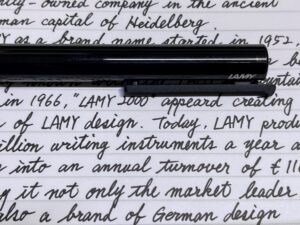 ly-owned company in the ancient
man capital of Heidelberg
Y as a brand name started in 1952
LAMY
in 1966, "LAMY 2000" appeard creating
of LAMY design. Today, LAMY produ
illion writing instruments a year a
into an annual turnover of € 11
it not only the market leader
also a brand of German design